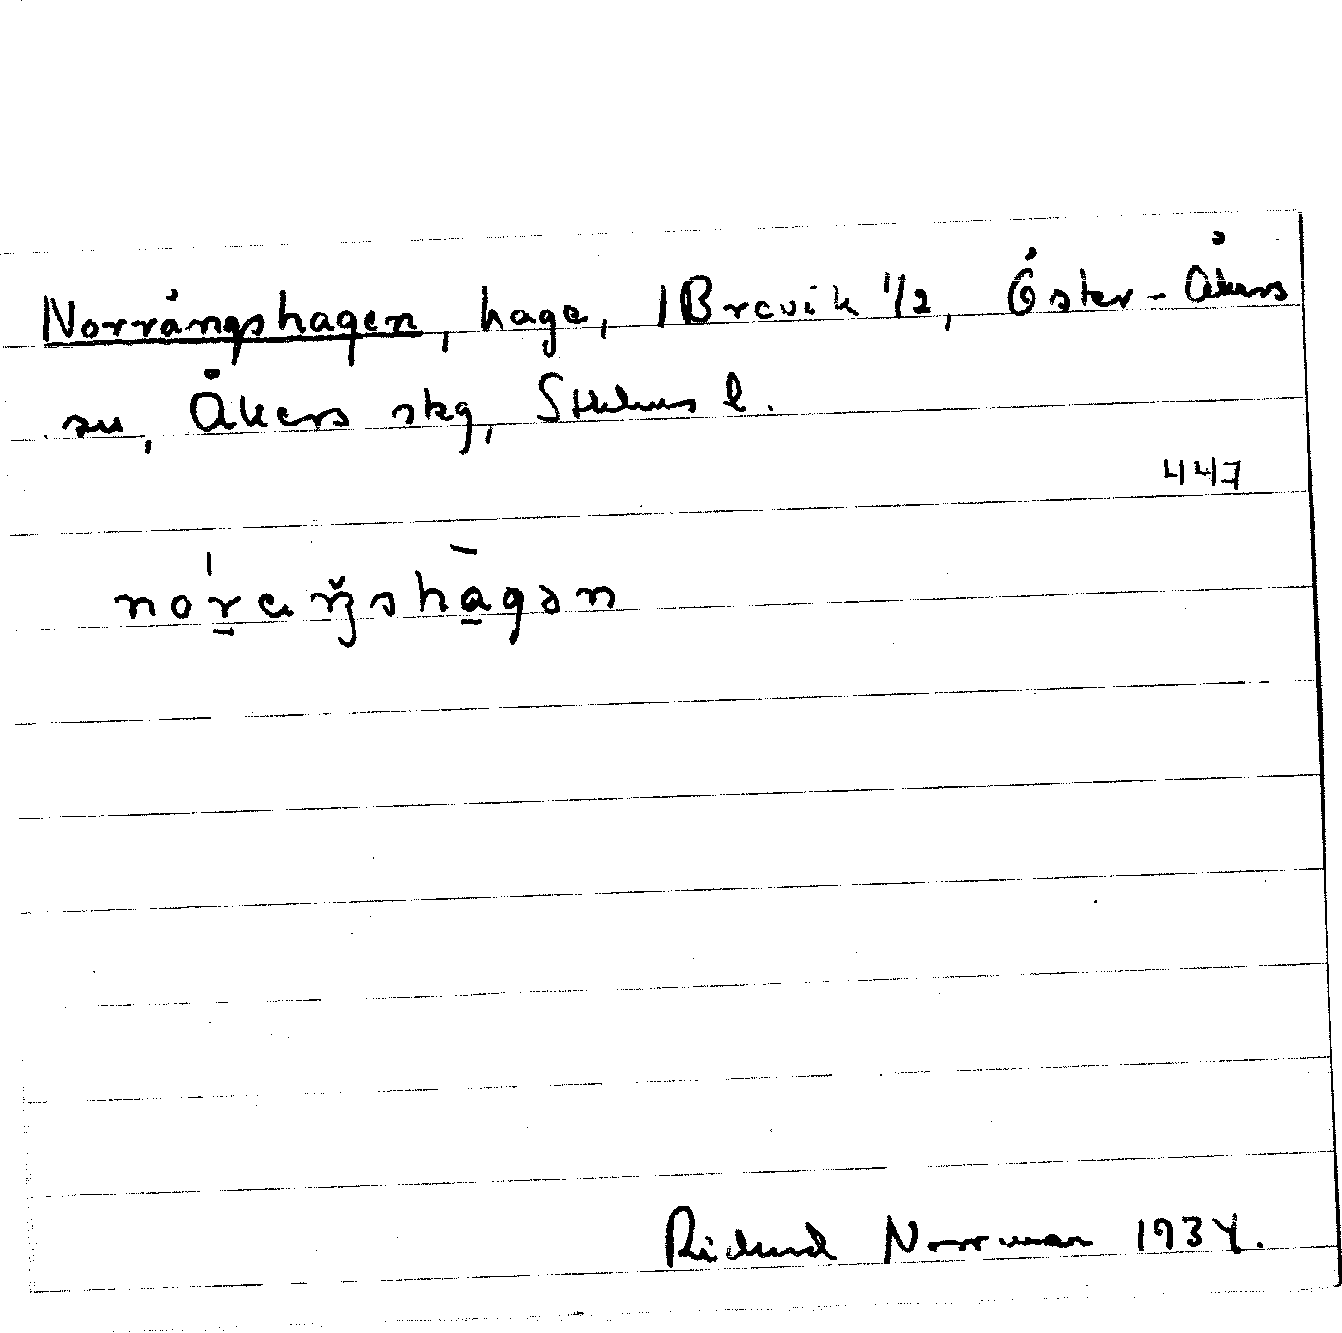 Norrängshagen, hage, 1 Brevik 1/2, Öster-Åkers
sn, Åkers skg, Sthlms l.
447
Richard Norrman 1934.